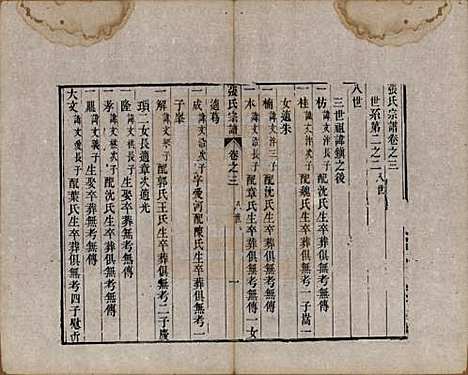 張氏宗譜卷之三
世系第二之二 八世
八世
三世祖諱鎮之後
一枋 諱文泮長子 配沈氏生卒葬俱無考無傳
一桂 諱文泮二子 配魏氏生卒葬俱無考一子嵩一
女適朱
一楠 諱文泮三子 配沈氏生卒葬俱無考無傳
一本 諱文 長子 配章氏生卒葬俱無考無傳一女
張氏宗譜 卷之三 八世 一
適葛
一成 諱文 子 字愛河配陳氏生卒葬俱無考一
子峯
一解 諱文 子 配郭氏王氏生卒葬俱無考二子慶
頊二女長適章次適光
一隆 諱文 長子 配沈氏生卒葬俱無考無傳
一孝 諱文 子 娶卒葬無考無傳
一 諱文 子 生娶卒葬無考無傳
大文 諱文愛長子 配葉氏生卒葬俱無考四子慰貢